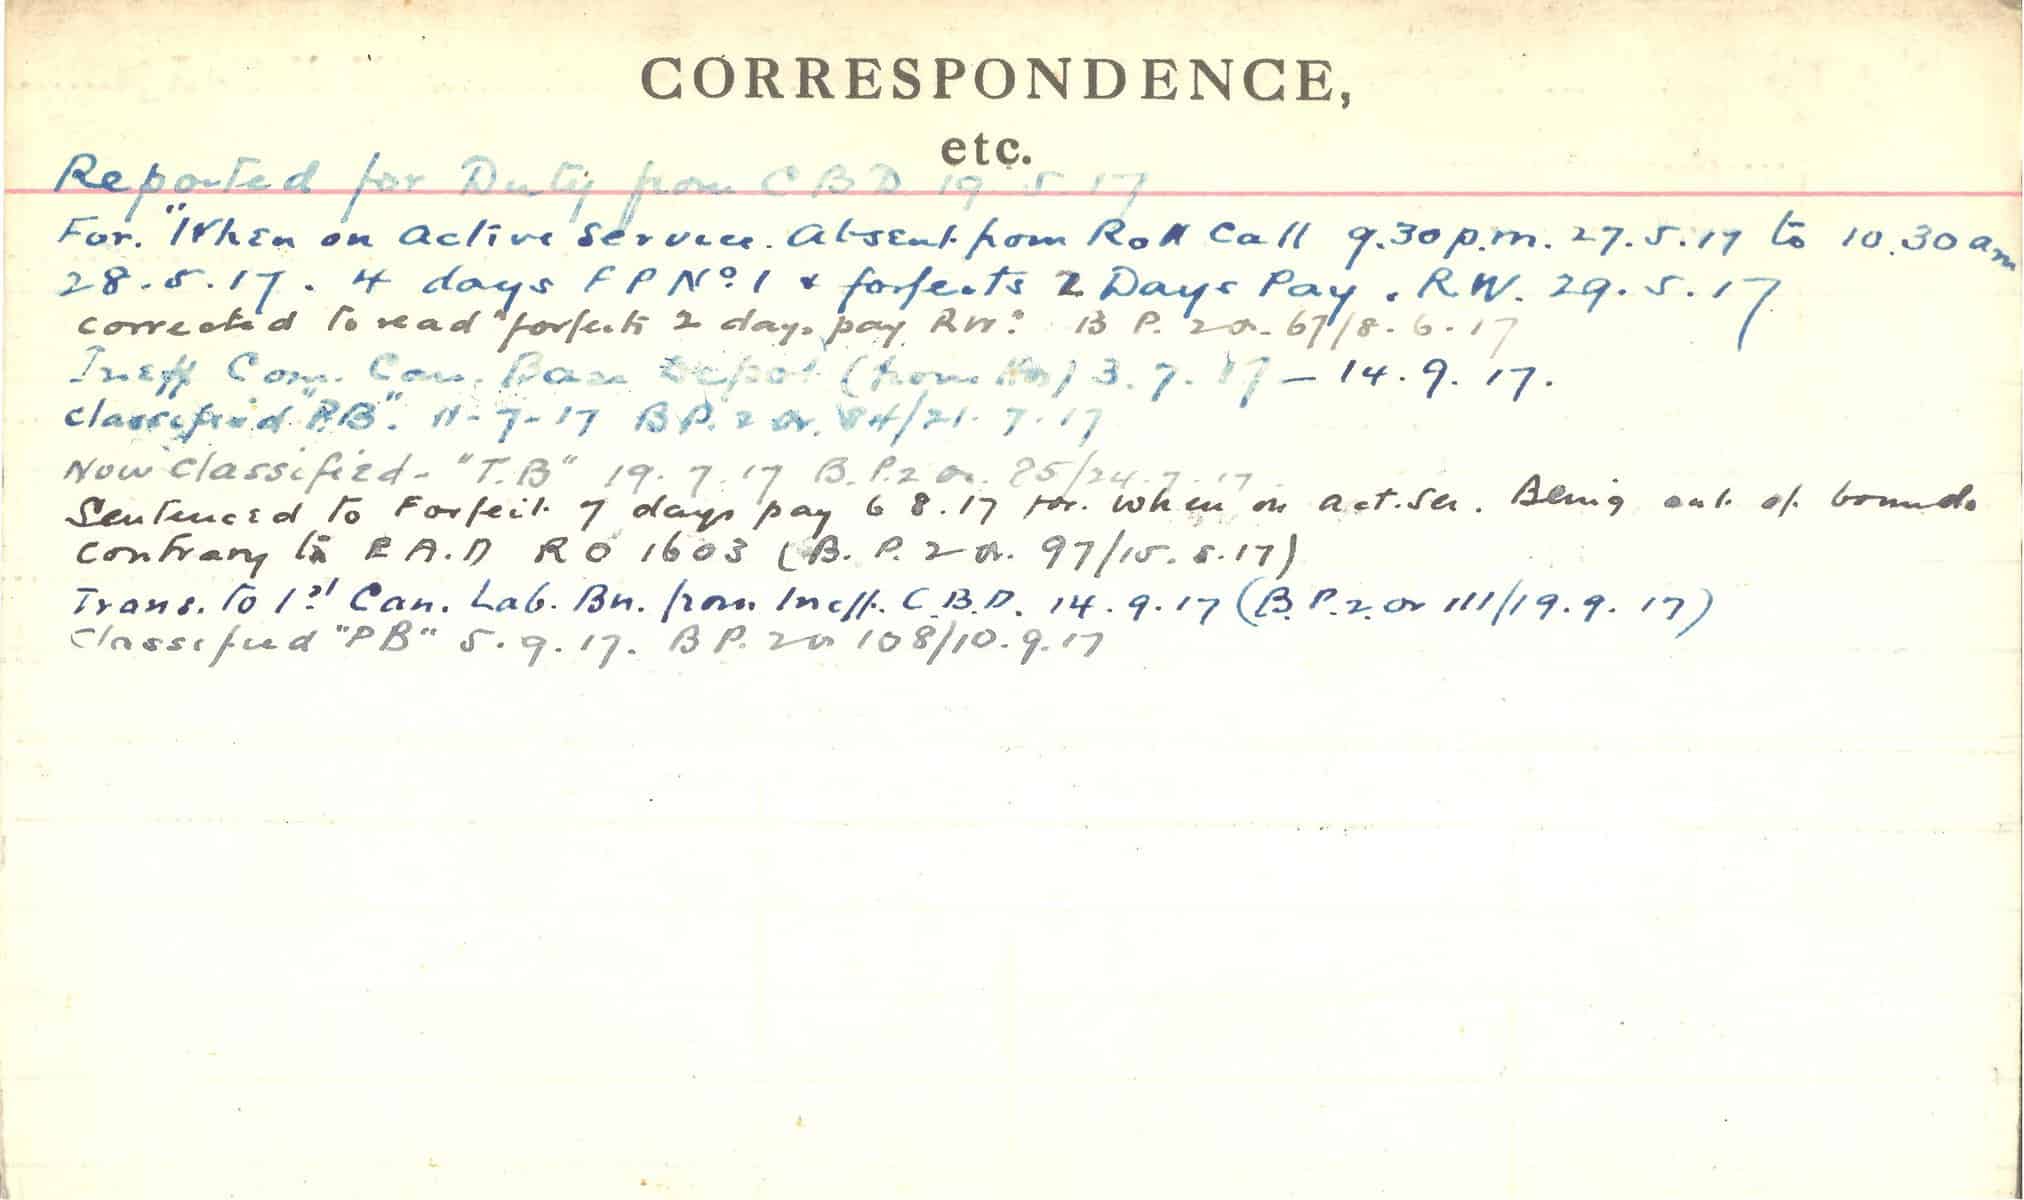 CORRESPONDENCE,
etc.
Reported for Duty from CBD 19.5.17
For. "When on Active Service. Absent from Roll Call 9.30 p.m. 27.5.17 to 10.30 am
28.5.17. 4 days F P No. 1 & forfeits 2 Days Pay. R.W. 29.5.17
corrected to read "forfeits 2 days pay RW: B P. 2 or. 67/8.6.17
Ineff Com. Can. Base Depot (from ) 3.7.17 – 14.9.17.
Classified "P.B". 11-7-17 B P. 2 or. 84/21.7.17
Now Classified - "T.B" 19.7.17 B.P. 2 or. 85/24.7.17.
Sentenced to Forfeit 7 days pay 6 8.17 for. when on act. ser. Being out of bounds
contrary to E A.D R O 1603 (B. P. 2 or. 97/15.8.17)
Trans. to 1st Can. Lab. Bn. from Ineff. C.B.D. 14.9.17 (B.P. 2. or 111/19.9.17)
Classified "PB" 5.9.17. B P. 2 or 108/10.9.17